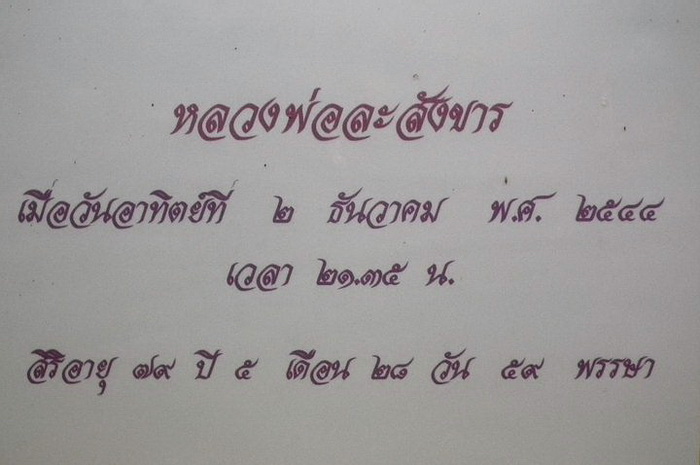 หลวงพ่อละสังขาร
เมื่อวันอาทิตย์ที่ ๒ ธันวาคม พ.ศ. ๒๕๔๔
เวลา ๒๑.๓๕ น.
สิริอายุ ๗๙ ปี ๕ เดือน ๒๘ วัน ๕๙ พรรษา